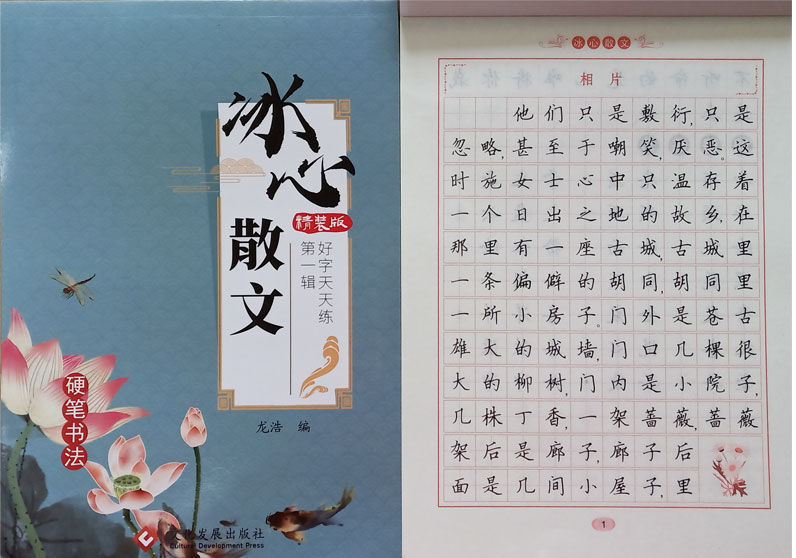 冰心
散文
精装版
好字天天练
第一辑
硬笔书法
龙浩 编
文化发展出版社
Cultural Development Press
冰心散文
相片
他们只是敷衍,只是
忽略,甚至于嘲笑,厌恶。这
时施女士心中只温存着
一个日出之地的故乡,在
那里有一座古城,古城里
一条偏僻的胡同,胡同里
一所小房子。门外是苍古
雄大的城墙,门口几棵很
大的柳树,门内是小院子,
几株丁香,一架蔷薇,蔷薇
架后是廊子,廊子后
面是几间小屋子,里
1